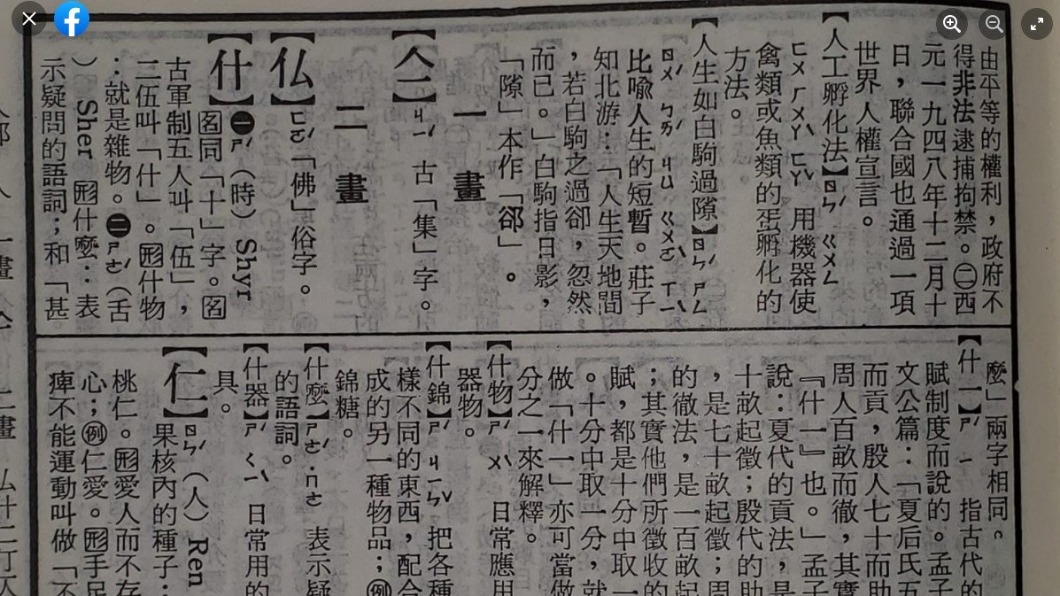 由平等的權利，政府不
得非法逮捕拘禁。㊁西
元一九四八年十二月十
日，聯合國也通過一項
世界人權宣言。
【人工孵化法】ㄖㄣˊ ㄍㄨㄥ
ㄈㄨ ㄏㄨㄚˋ ㄈㄚˇ 用機器使
禽類或魚類的蛋孵化的
方法。
【人生如白駒過隙】ㄖㄣˊ ㄕㄥ
ㄖㄨˊ ㄅㄞˊ ㄐㄩ ㄍㄨㄛˋ ㄒㄧˋ
比喻人生的短暫。莊子
知北游：「人生天地間
，若白駒之過郤，忽然
而已。」白駒指日影，
「隙」本作「郤」。
一畫
【亼】ㄐㄧˊ 古「集」字。
二畫
【仏】ㄈㄛˊ「佛」俗字。
【什】㊀ㄕˊ（時）Shyr
图同「十」字。图
古軍制五人叫「伍」，
二伍叫「什」。形什物
：就是雜物。㊁ㄕㄜˊ（舌
）Sher 形什麼：表
示疑問的語詞；和「甚
麼」兩字相同。
【什一】ㄕˊ ㄧ 指古代的
賦制度而說的。孟子
文公篇：「夏后氏五
而貢，殷人七十而助
周人百畝而徹，其實
『什一』也。」孟子
說：夏代的貢法，是
十畝起徵；殷代的助
，是七十畝起徵；周
的徹法，是一百畝起
；其實他們所徵收的
賦，都是十分中取一
。十分中取一分，就
做「什一」亦可當做
分之一來解釋。
【什物】ㄕˊ ㄨˋ 日常應用
器物。
【什錦】ㄕˊ ㄐㄧㄣˇ 把各種
樣不同的東西，配合
成的另一種物品；例
錦糖。
【什麼】ㄕㄜˊ ˙ㄇㄜ 表示疑
的語詞。
【什器】ㄕˊ ㄑㄧˋ 日常用的
具。
【仁】ㄖㄣˊ（人）Ren
果核內的種子：
桃仁。形愛人而不存
心；例仁愛。形手足
痺不能運動叫做「不